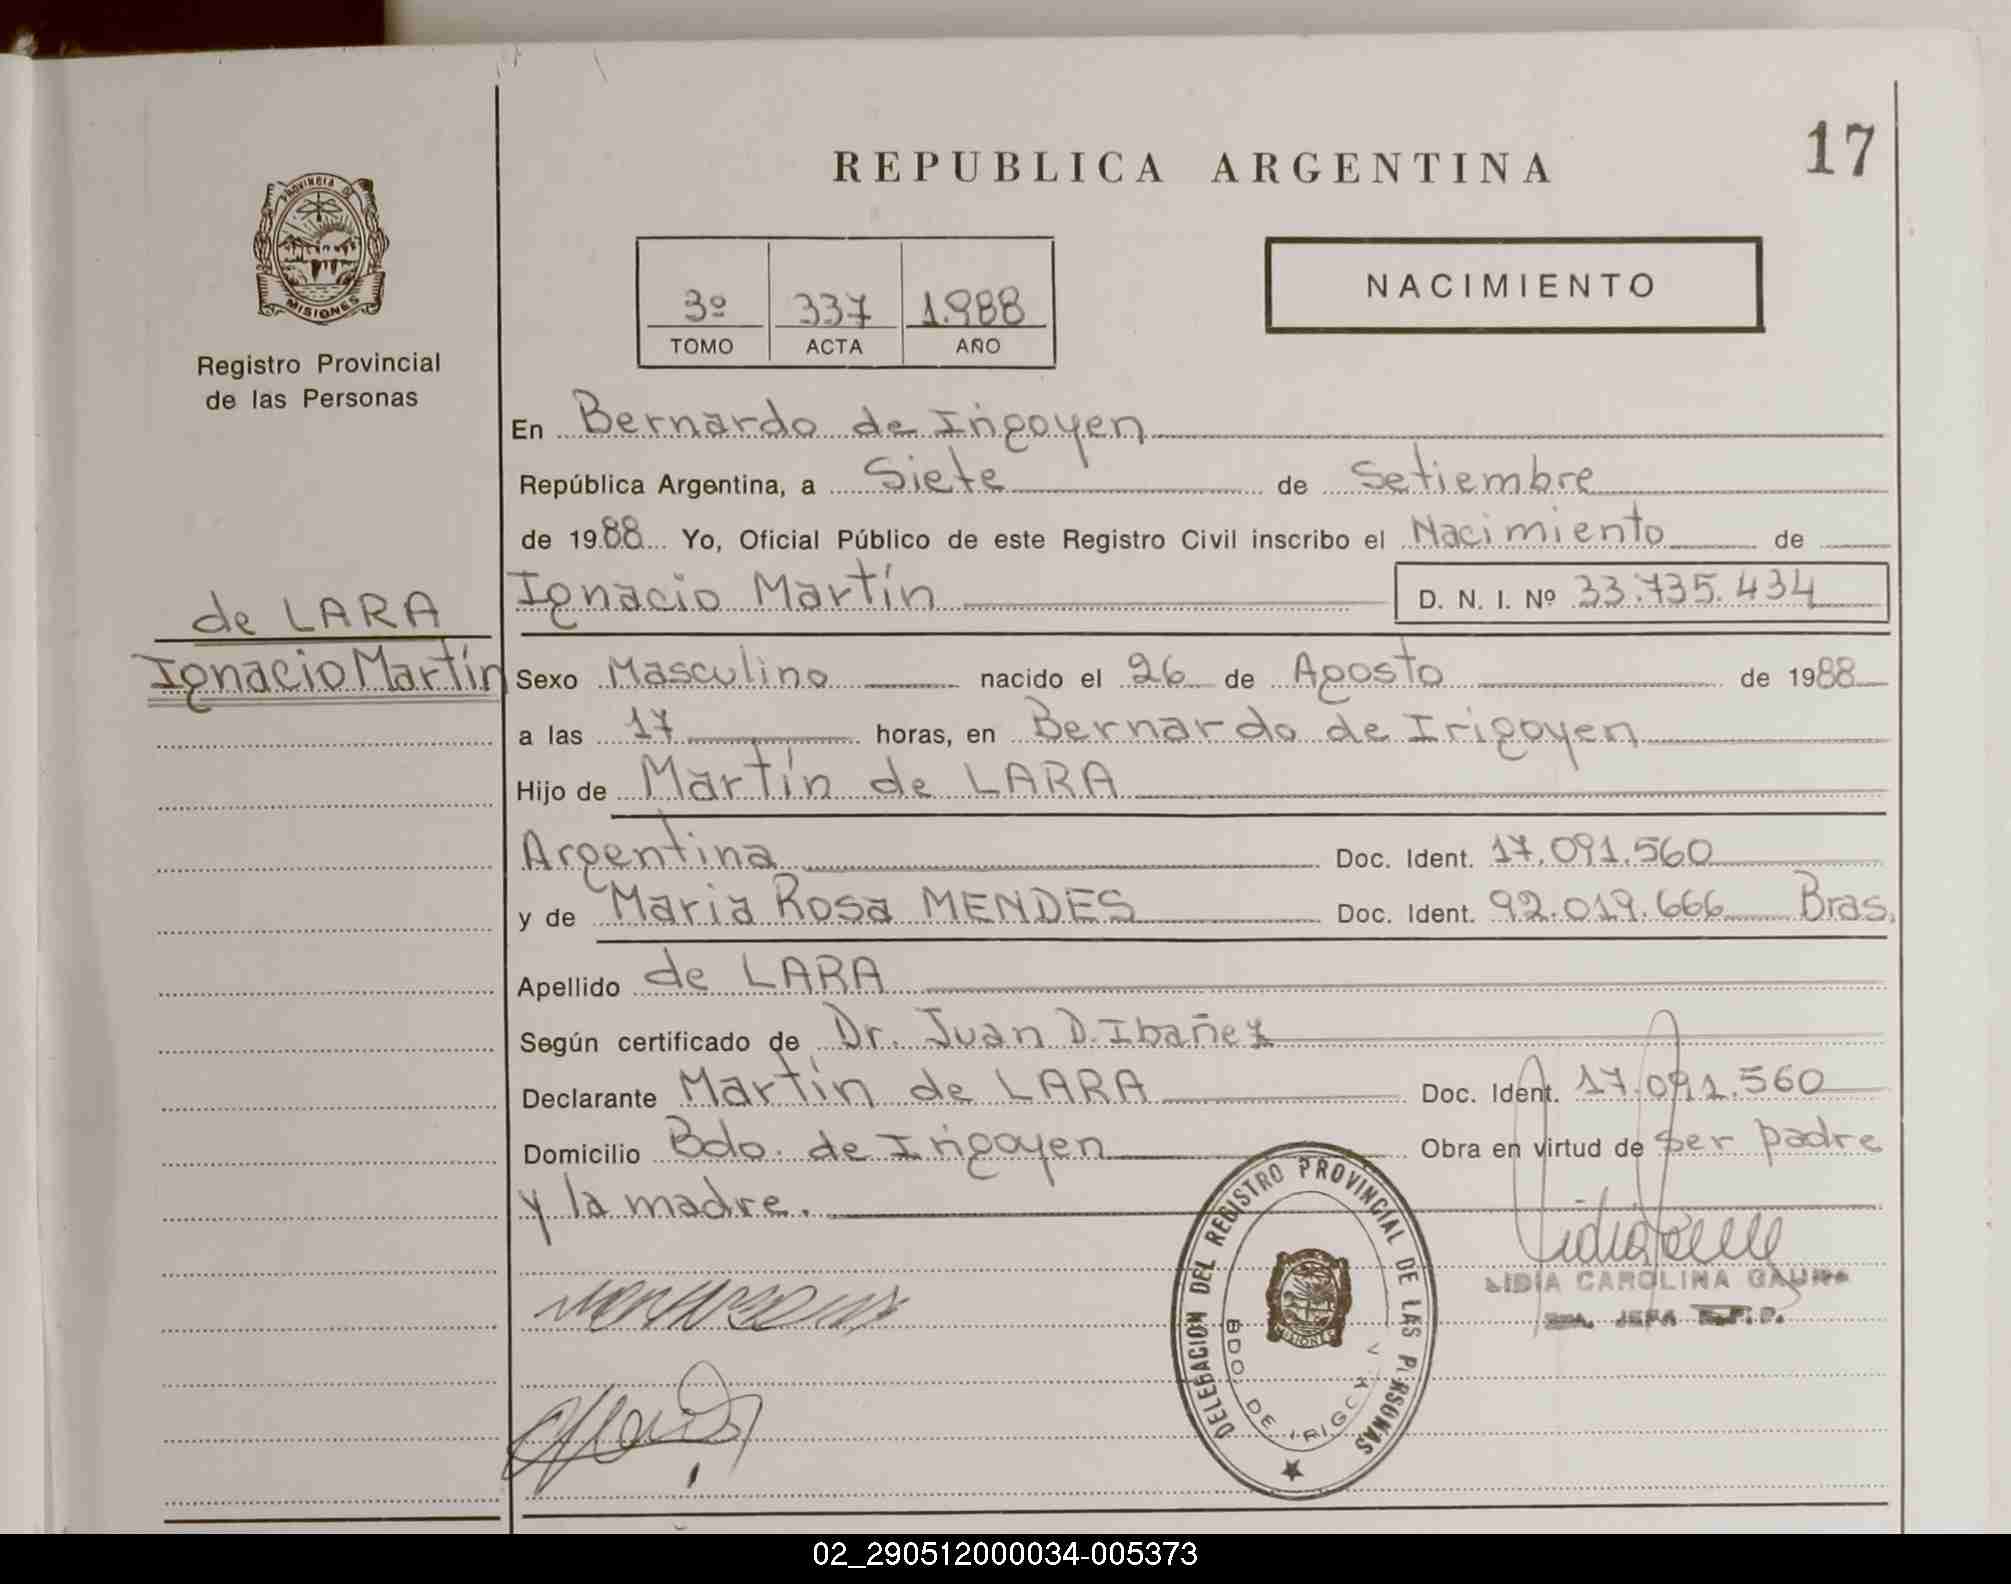 REPUBLICA ARGENTINA
17
PROVINCIA DE
MISIONES
Registro Provincial
de las Personas
3º 337 1.988
TOMO ACTA AÑO
NACIMIENTO
En Bernardo de Irigoyen
República Argentina, a Siete de Setiembre
de 1988 Yo, Oficial Público de este Registro Civil inscribo el Nacimiento de
de LARA
Ignacio Martín
Ignacio Martín D. N. I. Nº 33.735.434
Sexo Masculino nacido el 26 de Agosto de 1988
a las 17 horas, en Bernardo de Irigoyen
Hijo de Martín de LARA
Argentina Doc. Ident. 17.091.560
y de Maria Rosa MENDES Doc. Ident. 92.019.666 Bras.
Apellido de LARA
Según certificado de Dr. Juan D. Ibañez
Declarante Martín de LARA Doc. Ident. 17.091.560
Domicilio Bdo. de Irigoyen Obra en virtud de ser padre
y la madre.
DELEGACION DEL REGISTRO PROVINCIAL DE LAS PERSONAS
BDO DE IRIGOY
MISIONES
LIDIA CAROLINA
JEFA
02_290512000034-005373